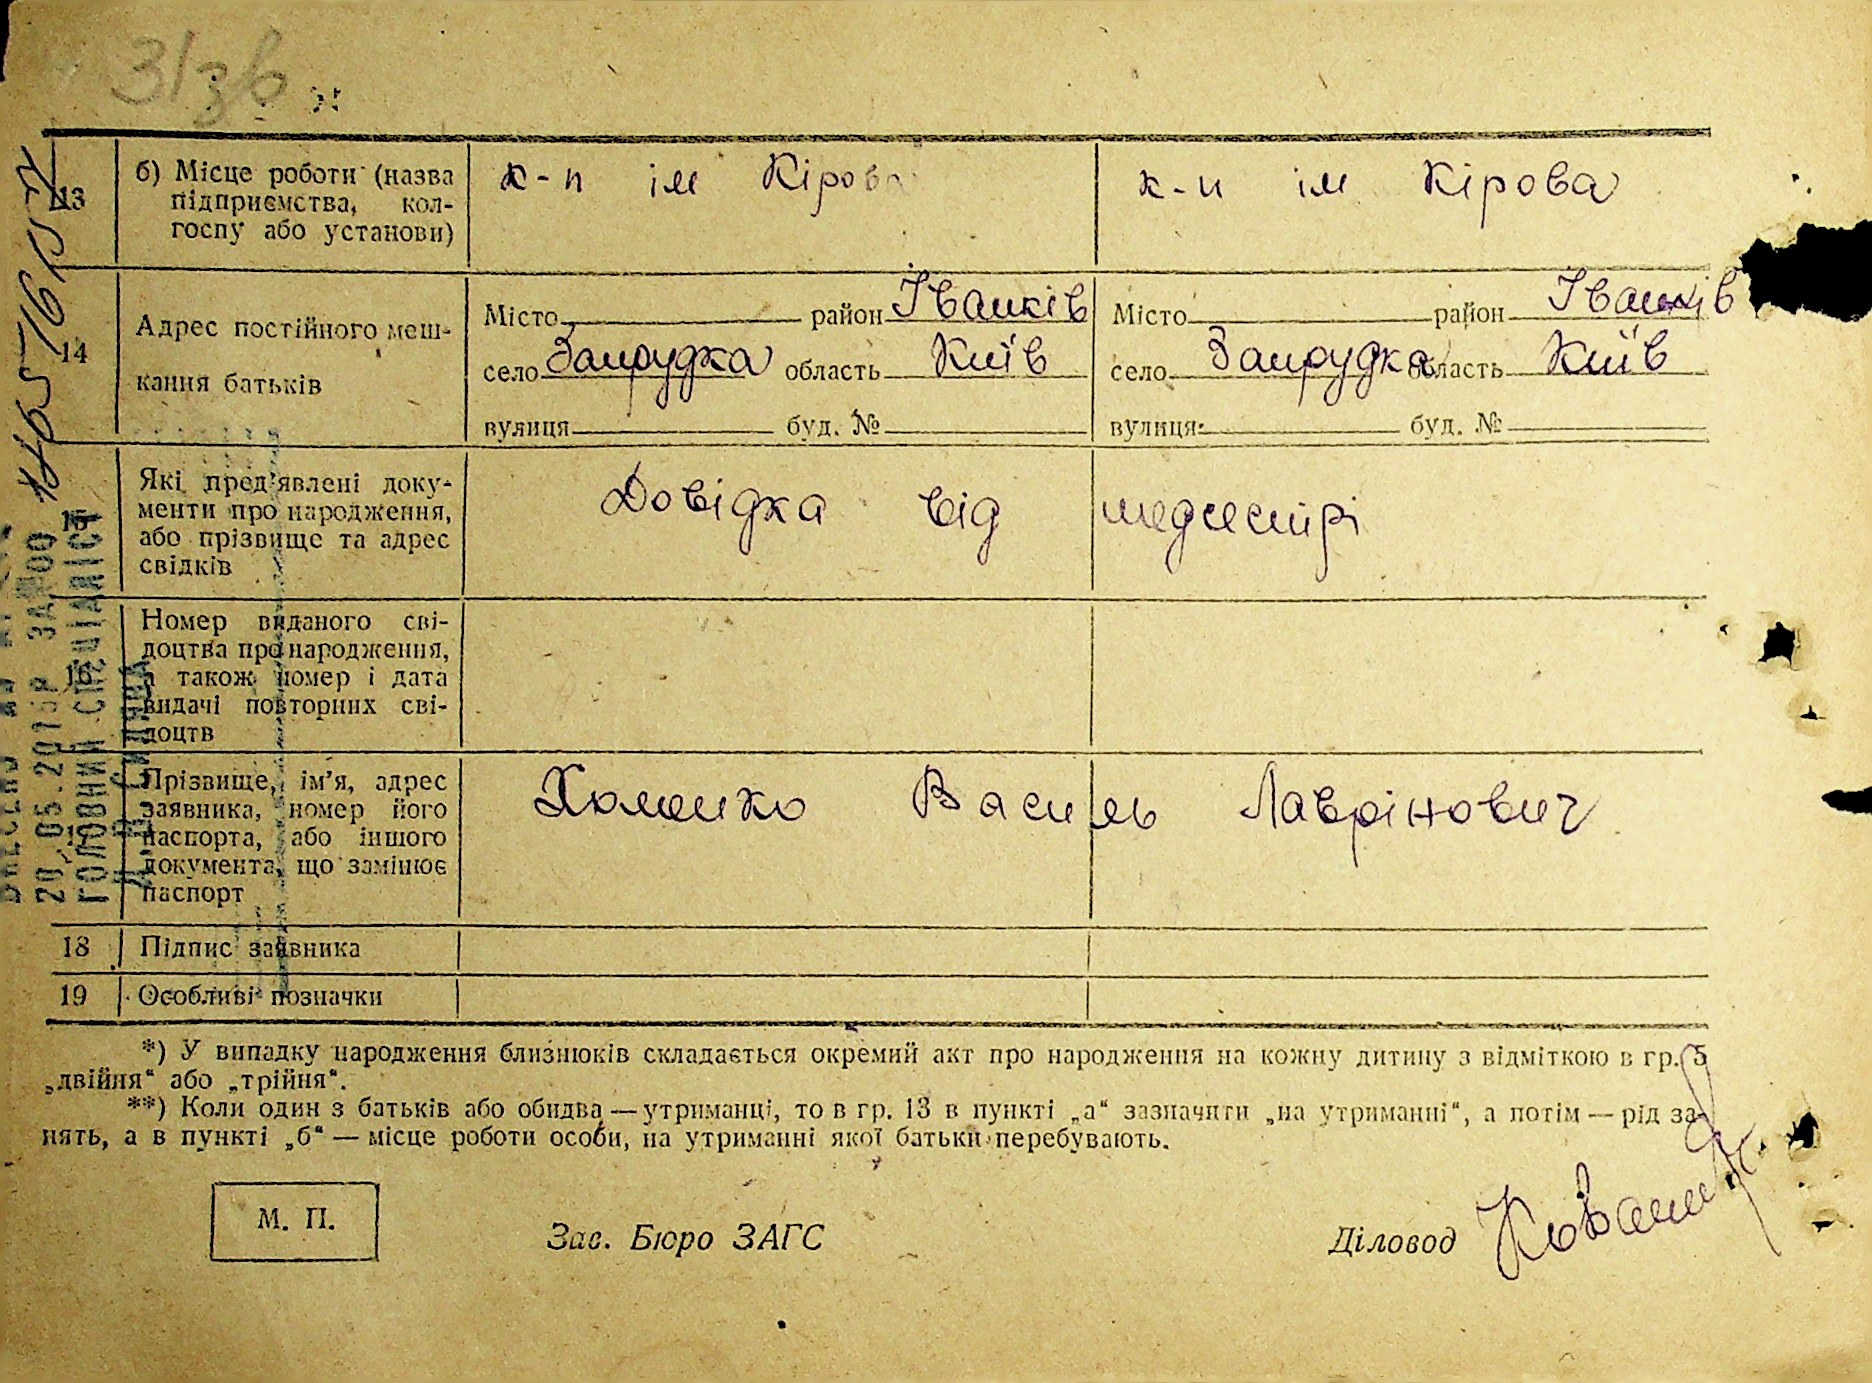 31зв
13
б) Місце роботи (назва
підприємства, кол-
госпу або установи)
к-п ім Кірова
к-п ім Кірова
14
Адрес постійного меш-
кання батьків
Місто район Іванків
село Запрудка область Київ
вулиця буд. №
Місто район Іванків
село Запрудка область Київ
вулиця буд. №
15
Які пред'явлені доку-
менти про народження,
або прізвище та адрес
свідків
Довідка від медсестрі
16
Номер виданого сві-
доцтва про народження,
а також номер і дата
видачі повторних сві-
доцтв
17
Прізвище, ім'я, адрес
заявника, номер його
паспорта, або іншого
документа, що замінює
паспорт
Хоменко Василь Лаврінович
18 Підпис заявника
19 Особливі позначки
*) У випадку народження близнюків складається окремий акт про народження на кожну дитину з відміткою в гр. 5
„двійня“ або „трійня“.
**) Коли один з батьків або обидва — утриманці, то в гр. 13 в пункті „а“ зазначити „на утриманні“, а потім — рід за-
нять, а в пункті „б“ — місце роботи особи, на утриманні якої батьки перебувають.
М. П.
Зав. Бюро ЗАГС
Діловод
ГОЛОВНИЙ СПЕЦІАЛІСТ